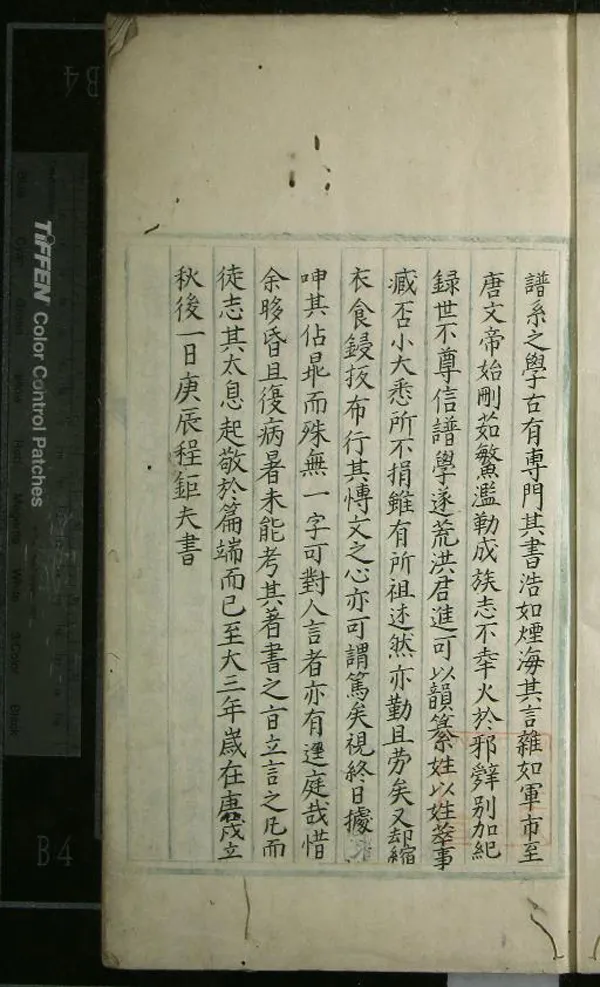 譜系之學古有專門其書浩如煙海其言雜如軍市至
唐文帝始刪茹繁濫勒成族志不幸火於邪辥別加紀
録世不尊信譜學遂荒洪君進可以韻纂姓以姓萃事
臧否小大悉所不捐雖有所祖述然亦勤且劳矣又却縮
衣食鋟板布行其愽文之心亦可謂篤矣視終日據
呻其佔畢而殊無一字可對人言者亦有逕庭哉惜
余眵昏且復病暑未能考其著書之旨立言之凡而
徒志其太息起敬於篇端而已至大三年嵗在庚戌立
秋後一日庚辰程鉅夫書
TIFFEN Color Control Patches
B4
B4